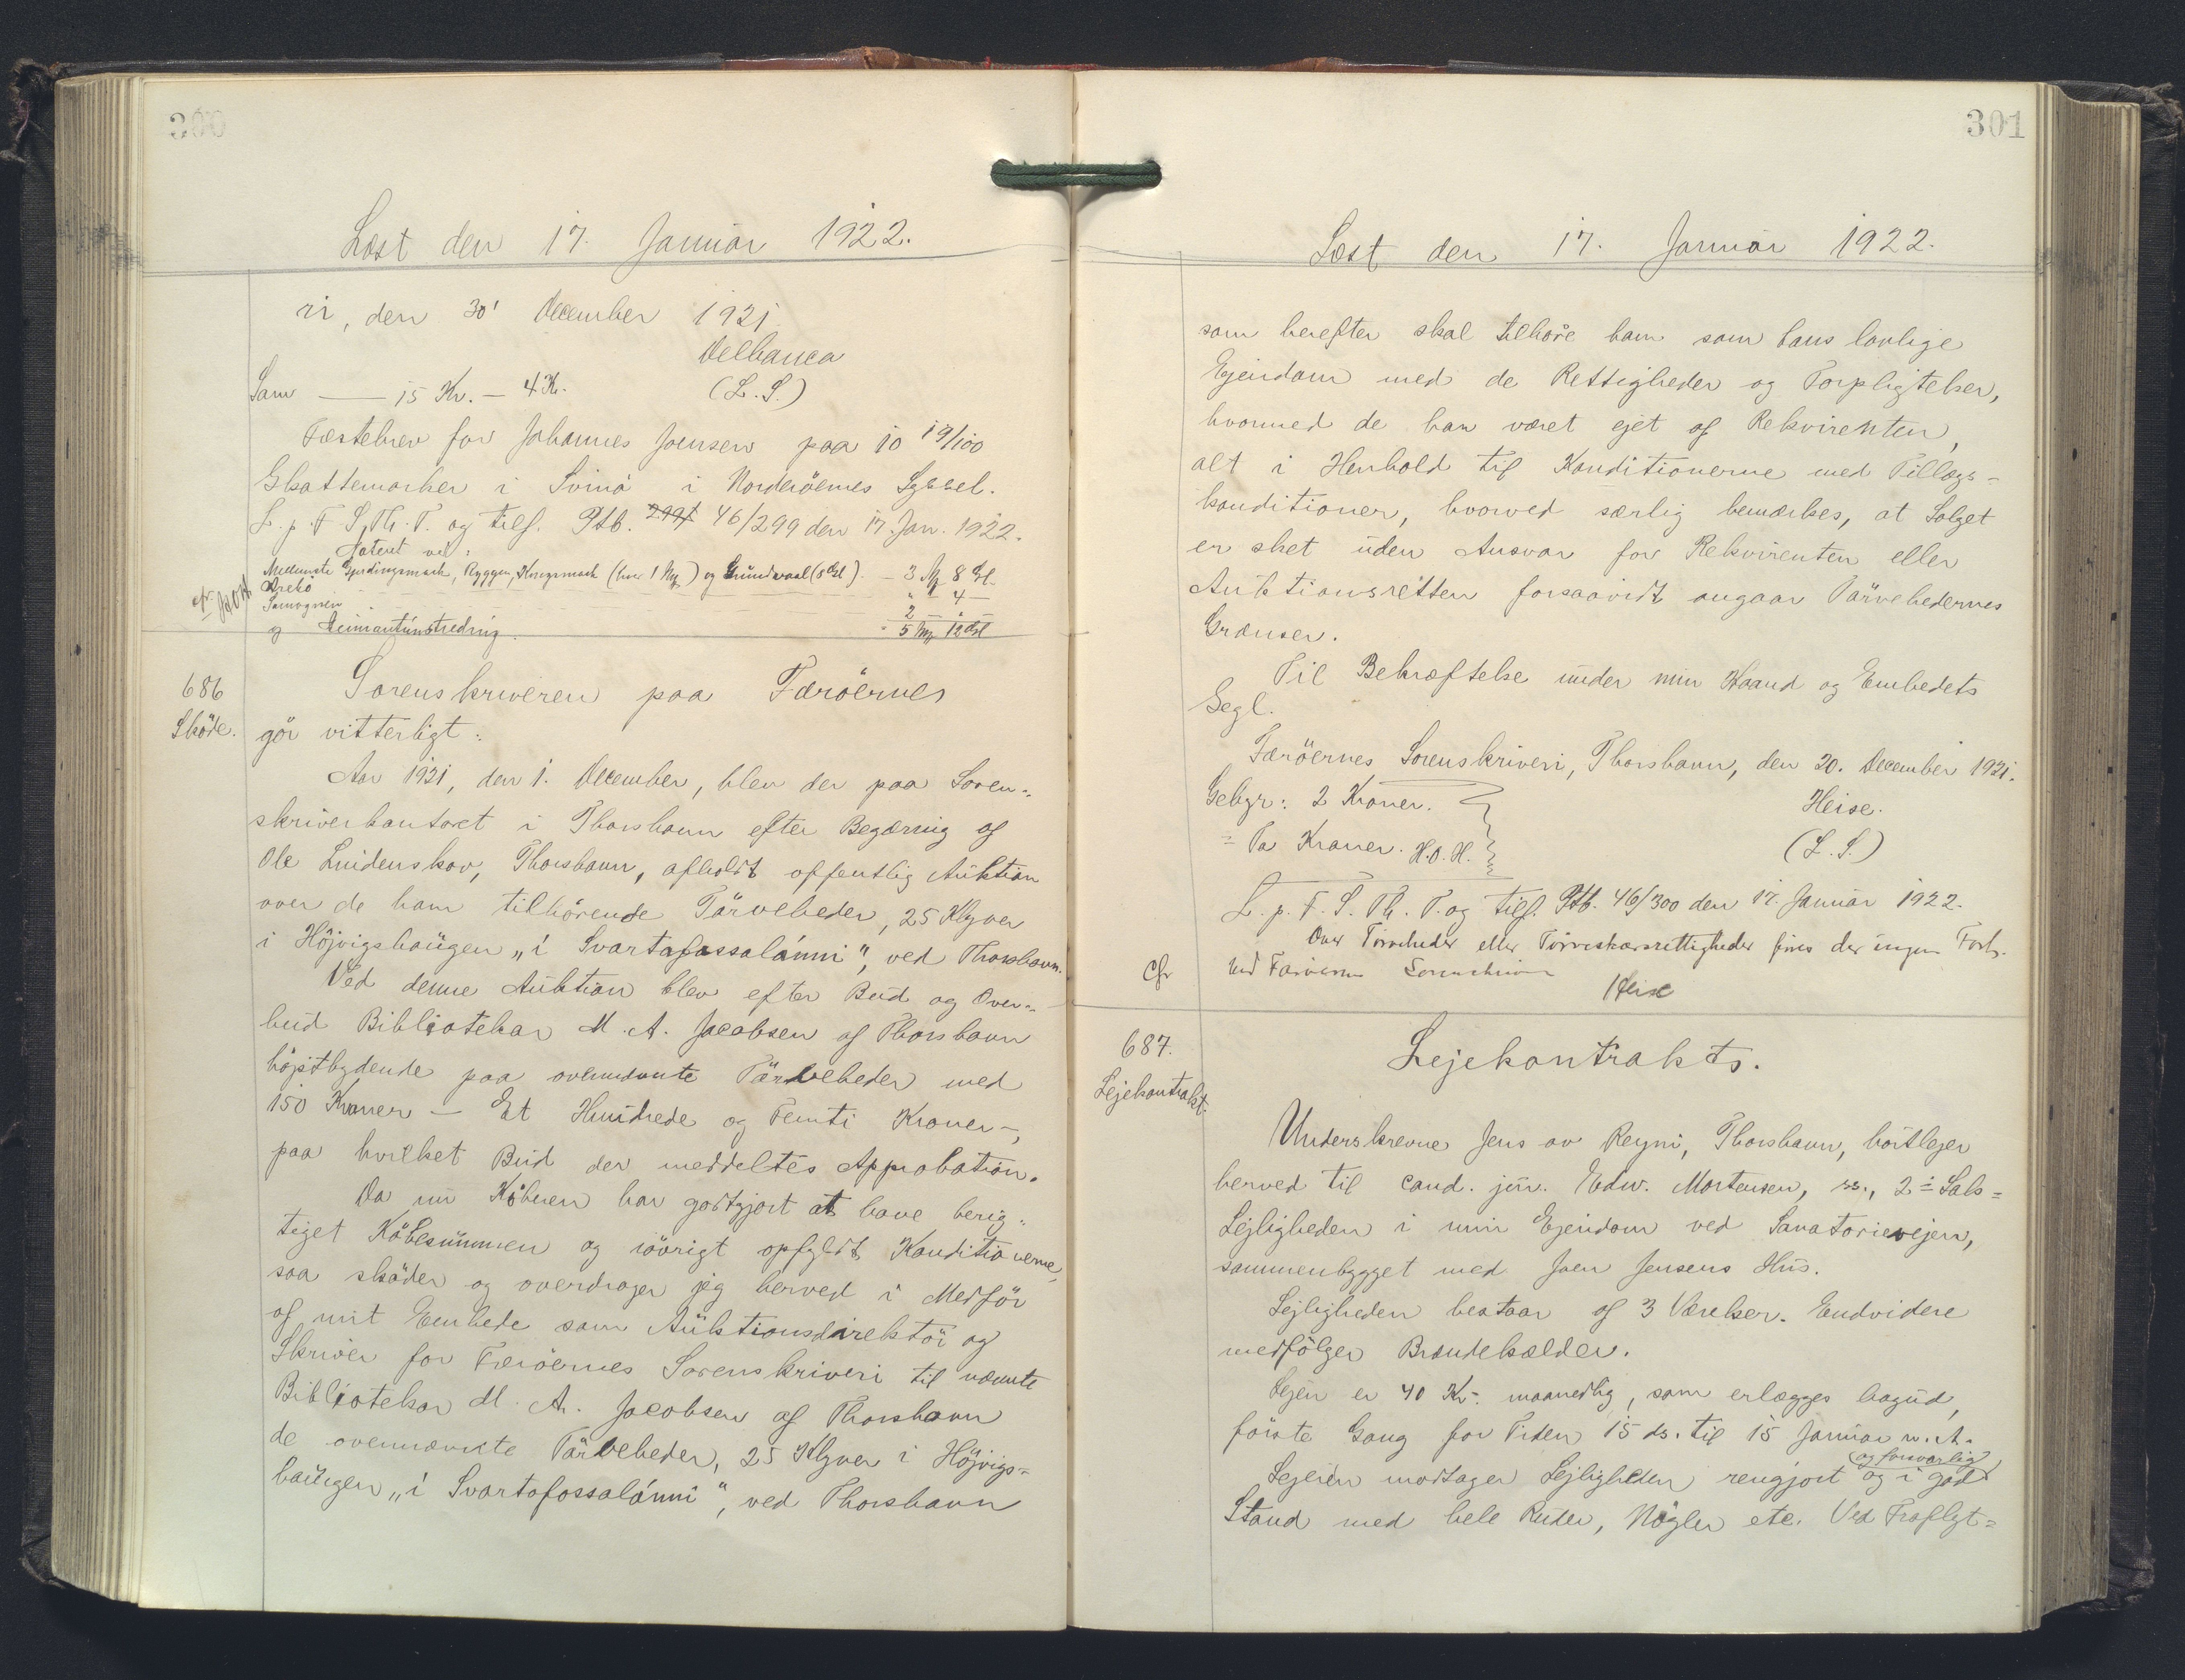 300
Læst den 17. Januar 1922.
ri, den 30' December 1921
Velbanca
Sam — 15 Kr. — 4 K. (L. S.)
Fæstebrev for Johannes Joensen paa 10 19/100
Skattemarker i Svinå i Norderöernes Syssel.
L. p. F. S, Th. T. og tilf. Ptb. 299/ 46/299 den 17. Jan. 1922.
Noteret ved:
Mellemste Gjerdingsmark, Ryggen, Kongsmark (hver 1 Mk) og (8 Gl). — 3 Mk 8 Gl.
cfr Krekö " 4 —
2 — " —
og Heimantúnstredring. 5 Mk 12 Gl
686
Sköde.
Sorenskriveren paa Færöernes
gör vitterligt:
Aar 1921, den 1. December, blev der paa Soren-
skriverkontoret i Thorshavn efter Begæring af
Ole Lindenskov, Thorshavn, afholdt offentlig Auktion
over de ham tilhörende Törveheder, 25 Klyver
i Höjvigshaugen „í Svartafossalánni", ved Thorshavn.
Ved denne Auktion blev efter Bud og Over-
bud Bibliotekar M. A. Jacobsen af Thorshavn
höjstbydende paa ovennævnte Törveheder med
150 Kroner — Et Hundrede og Femti Kroner —,
paa hvilket Bud der meddeltes Approbation.
Da nu Köberen har godtgjort at have berig-
tiget Köbesummen og iövrigt opfyldt Konditionerne,
saa sköder og overdrager jeg herved i Medför
af mit Embede som Auktionsdirektör og
Skriver for Færöernes Sorenskriveri til nævnte
Bibliotekar M. A. Jacobsen af Thorshavn
de ovennævnte Törveheder, 25 Klyver i Höjvigs-
haugen „í Svartafossalánni", ved Thorshavn
301
Læst den 17. Januar 1922.
som herefter skal tilhöre ham som hans lovlige
Ejendom med de Rettigheder og Forpligtelser,
hvormed de har været ejet af Rekvirenten,
alt i Henhold til Konditionerne med Tillægs-
konditioner, hvorved særlig bemærkes, at Salget
er sket uden Ansvar for Rekvirenten eller
Auktionsretten forsaavidt angaar Törvehedernes
Grænser.
Til Bekræftelse under min Haand og Embedets
Segl.
Færöernes Sorenskriveri, Thorshavn, den 20. December 1921.
Gebyr: 2 Kroner. Heise.
= To Kroner. H.O.H. (L. S.)
L. p. F. S. Th. T. og tilf. Ptb. 46/300 den 17. Januar 1922.
Over Törveheder eller Törveskærsrettigheder föres der ingen Fort.
Cfr ved Færöernes Sorenskriveri
Heise
687.
Lejekontrakt.
Lejekontrakts.
Underskrevne Jens av Reyni, Thorshavn, bortlejer
herved til cand. jur. Edw. Mortensen, ss., 2= Sals-
Lejligheden i min Ejendom ved Sanatorievejen,
sammenbygget med Joen Jensens Hus.
Lejligheden bestaar af 3 Værelser. Endvidere
medfölger Brændekælder.
Lejen er 40 Kr. maanedlig, som erlægges bagud,
förste Gang for Tiden 15 ds. til 15 Januar n. A.
Lejeren modtager Lejligheden rengjort og i god (og forsvarlig)
Stand med hele Ruder, Nögler etc. Ved Fraflyt-